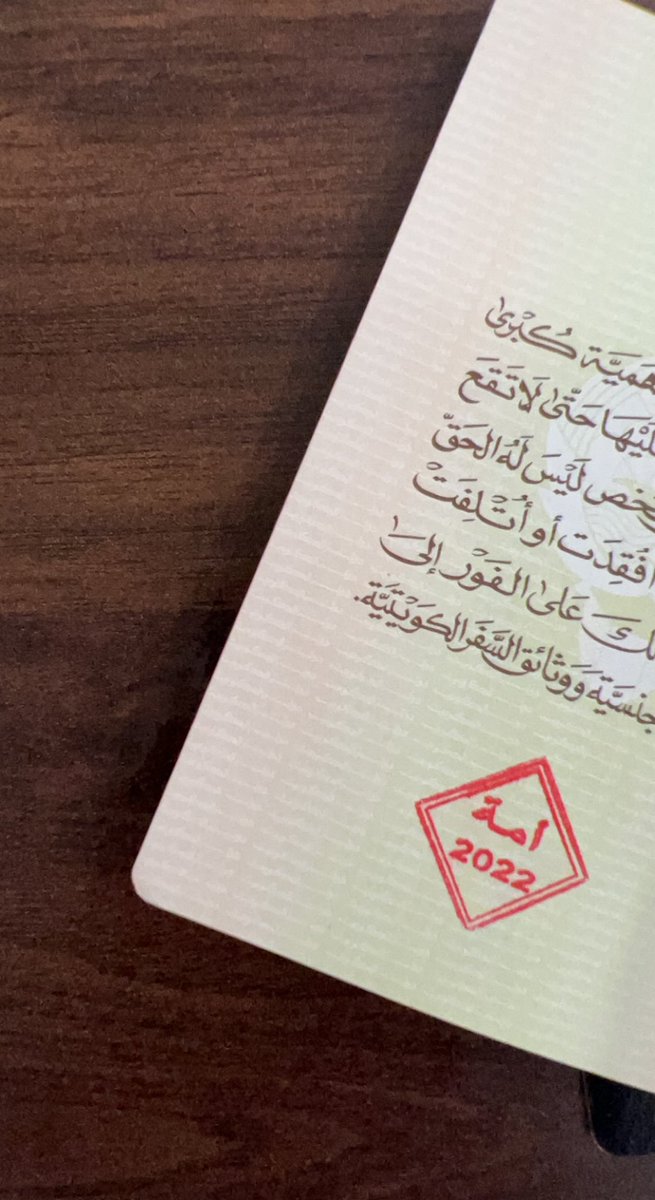 هَمِيَّة كُبْرىٰ
عَلَيْهَا حَتّىٰ لَا تَقَعَ
لَيْسَ لَهُ الحَقّ
فُقِدَت أو أُتْلِفَتْ
عَلىٰ الفَوْر إلىٰ
جنسيَّة وَوَثائق السَّفَر الكوَيْتيَّة.
أمة
2022